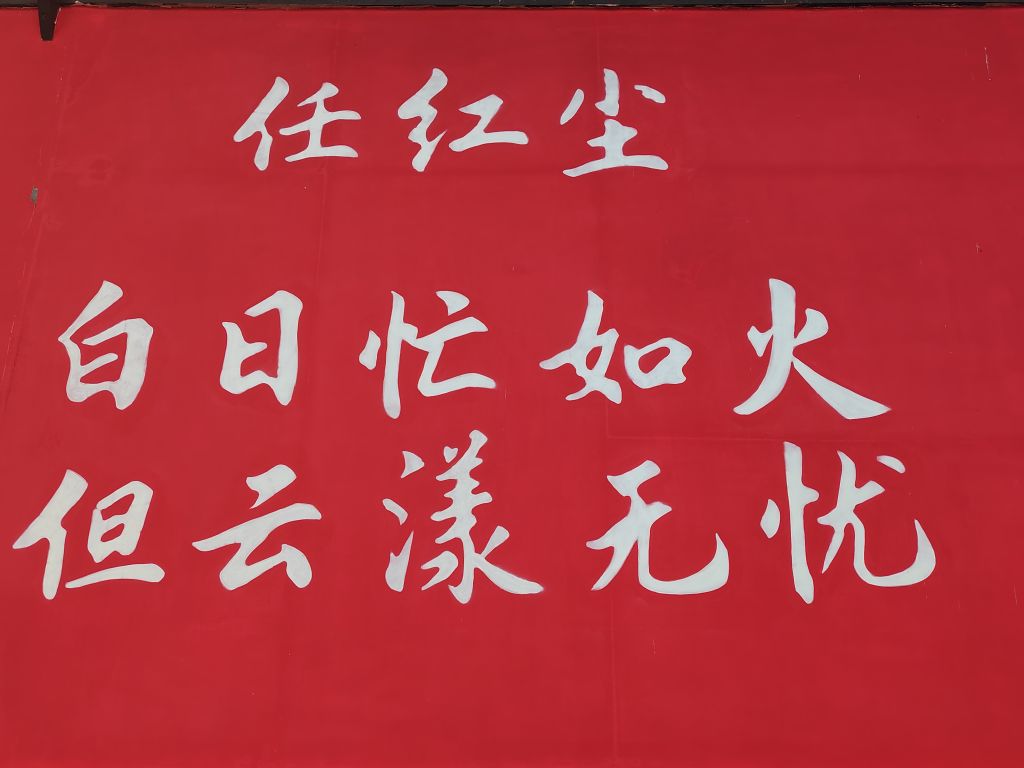 任红尘
白日忙如火
但云漾无忧